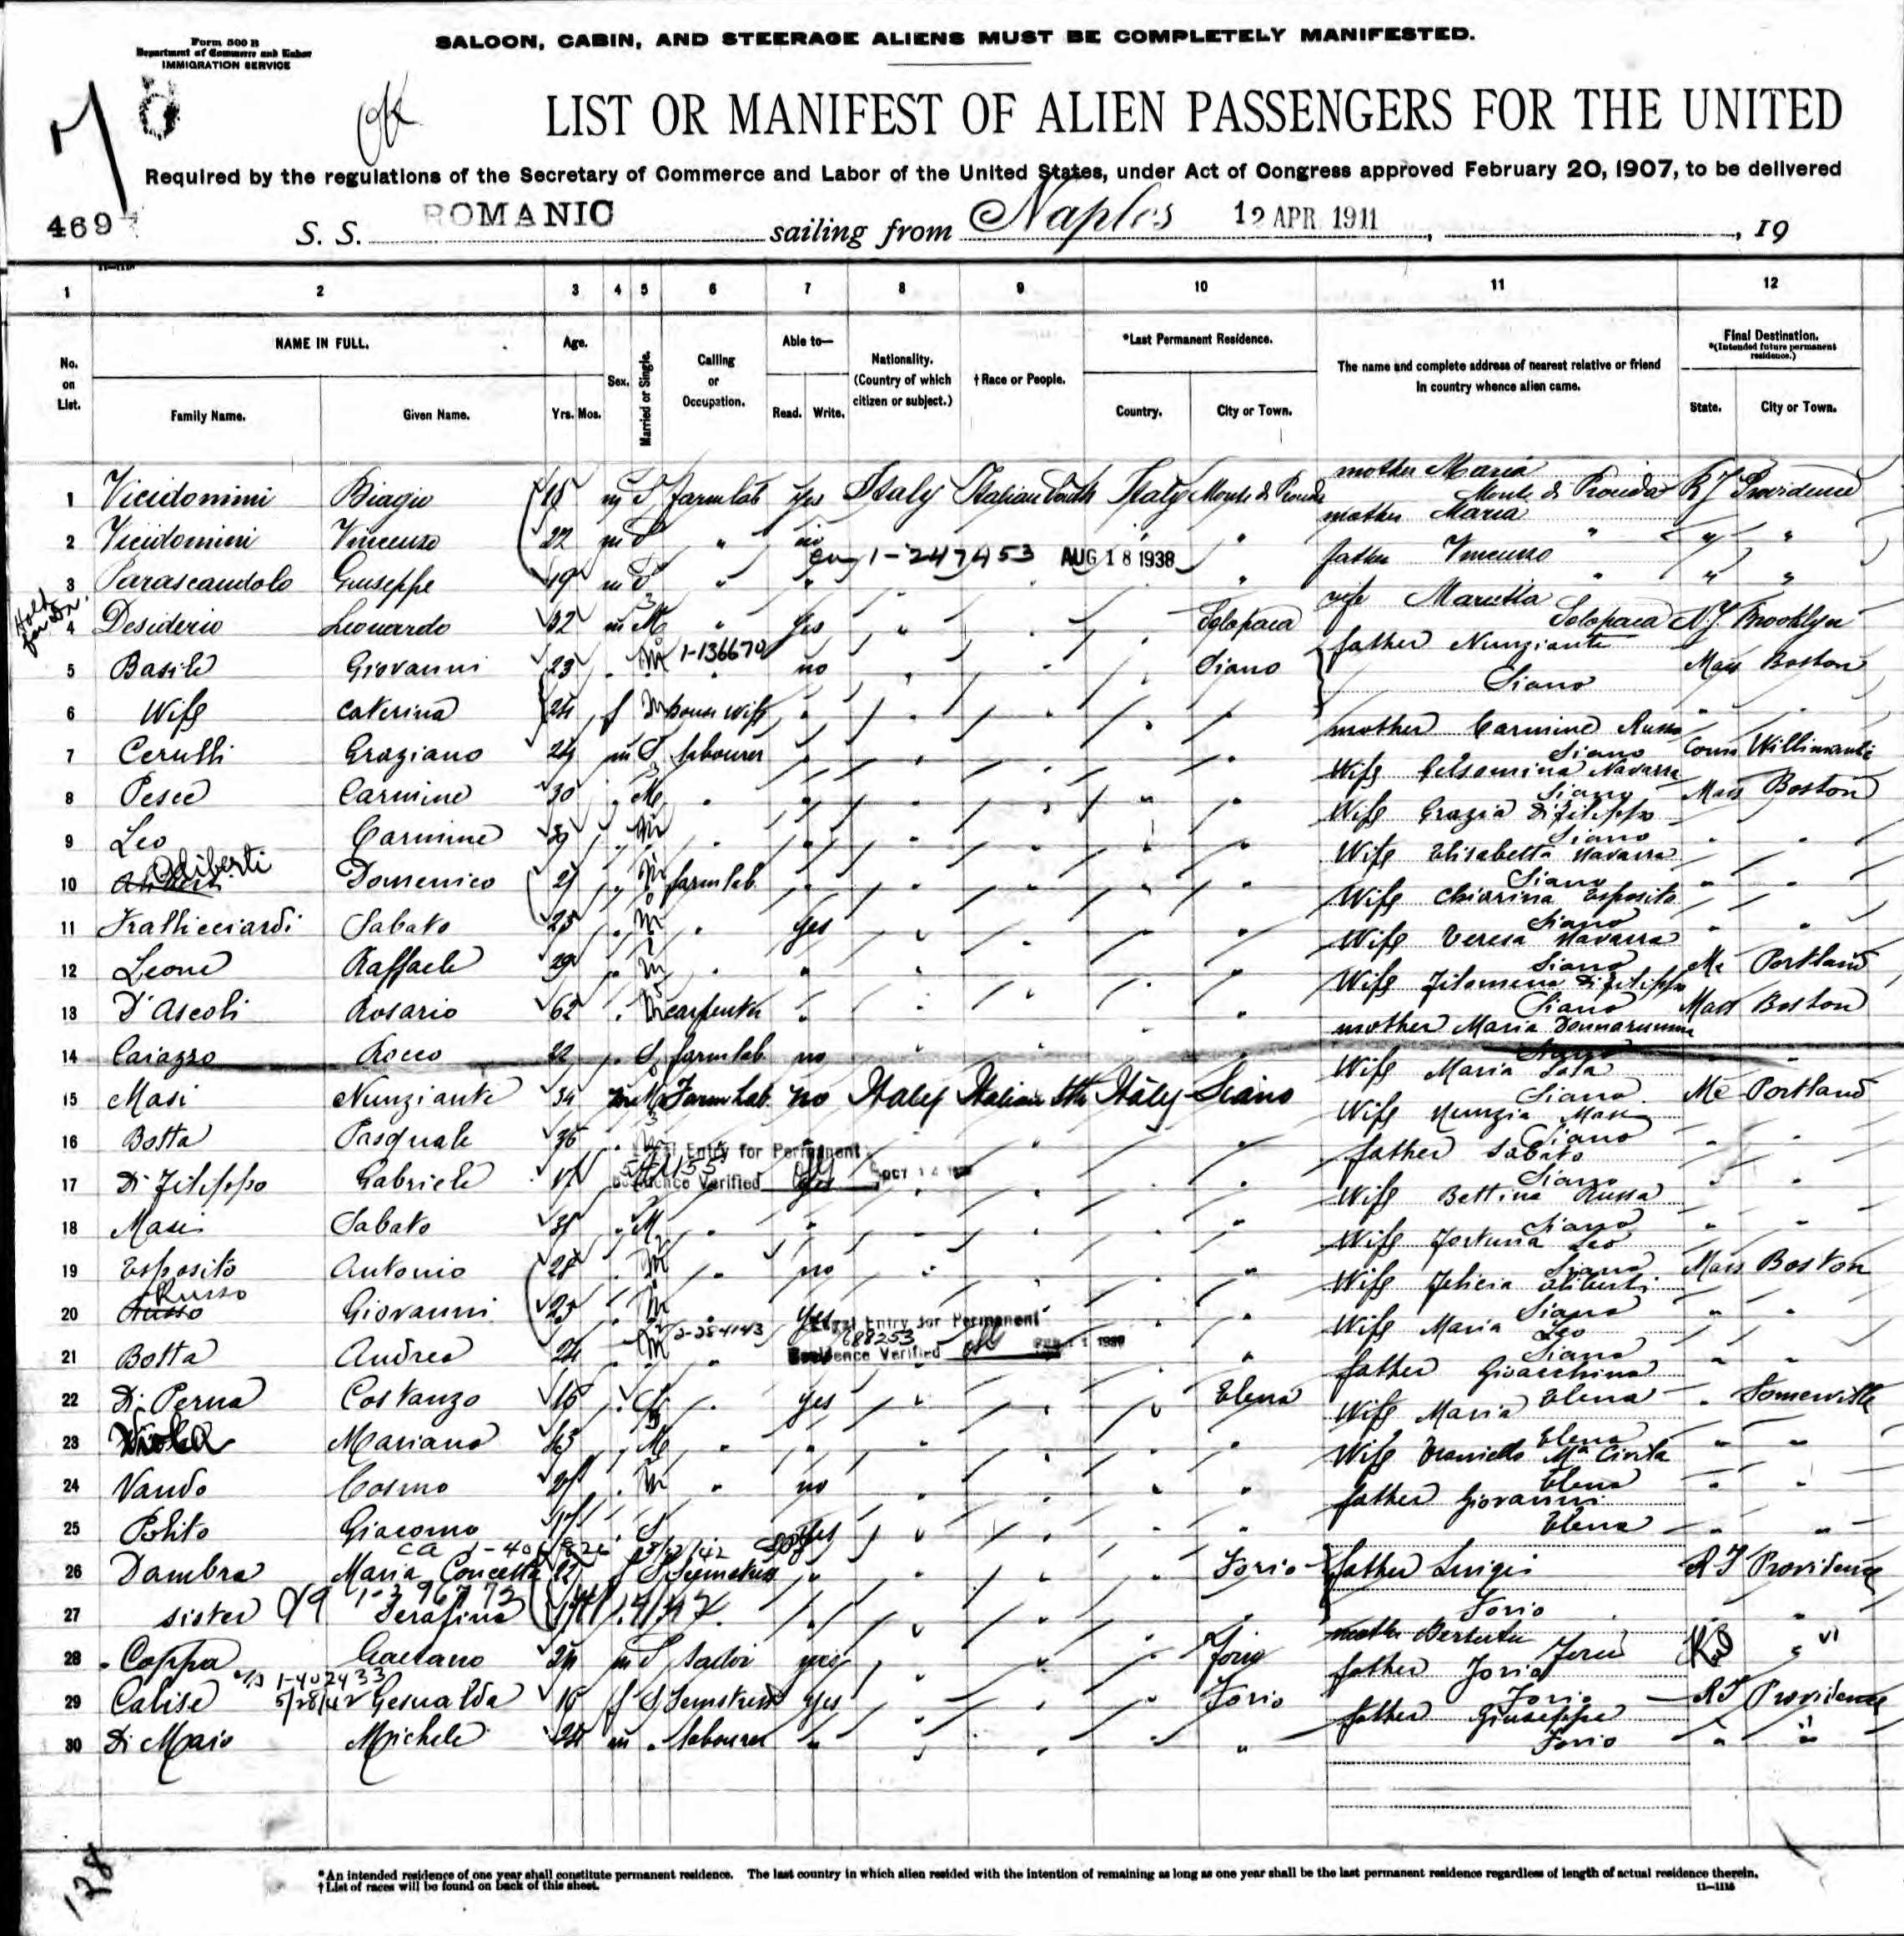 Form 500 B
Department of Commerce and Labor
IMMIGRATION SERVICE
SALOON, CABIN, AND STEERAGE ALIENS MUST BE COMPLETELY MANIFESTED.
7
ok
LIST OR MANIFEST OF ALIEN PASSENGERS FOR THE UNITED
Required by the regulations of the Secretary of Commerce and Labor of the United States, under Act of Congress approved February 20, 1907, to be delivered
469
S. S. ROMANIC sailing from Naples 12 APR 1911, , 19
1 2 3 4 5 6 7 8 9 10 11 12
No. on List. NAME IN FULL. Family Name. Given Name. Age. Yrs. Mos. Sex. Married or Single. Calling or Occupation. Able to— Read. Write. Nationality. (Country of which citizen or subject.) †Race or People. *Last Permanent Residence. Country. City or Town. The name and complete address of nearest relative or friend in country whence alien came. Final Destination. *(Intended future permanent residence.) State. City or Town.
mother Maria
1 Vicidomini Biagio 18 m S farm lab yes Italy Italian South Italy Monte di Procida Monte di Procida R I Providence
mother Maria
2 Vicidomini Vincenzo 22 m S " no " " " "
1-247453 AUG 18 1938
father Vincenzo
3 Parascandolo Giuseppe 19 m S " " " " " "
Hold for Dr.
wife Marietta
4 Desiderio Leonardo 32 m M " yes " " " Solopaca Solopaca N.Y. Brooklyn
1-136670
father Nunziante
5 Basile Giovanni 23 " m " no " " " Siano Siano Mass Boston
6 Wife Caterina 24 f m house wife " " " " "
mother Carmine Russo
7 Cerulli Graziano 24 m S labourer " " " " " Siano Conn Willimantic
Wife Gelsomina Navarra
8 Pesce Carmine 30 " M " " " " " " Siano Mass Boston
Wife Grazia Difilippo
9 Leo Carmine 29 " m " " " " " " Siano " "
Wife Elisabetta Navarra
10 Aliberti Domenico 21 " m farm lab. " " " " " Siano " "
Wife Chiarina Esposito
11 Frallicciardi Sabato 25 " m " yes " " " " Siano " "
Wife Teresa Navarra
12 Leone Raffaele 29 " m " " " " " " Siano Me Portland
Wife Filomena Difilippo
13 D'Ascoli Rosario 62 " m carpenter " " " " " Siano Mass Boston
mother Maria Donnarumma
14 Caiazzo Rocco 22 " S farm lab. no " " " " Siano " "
Wife Maria
15 Masi Nunziante 34 m M Farm Lab. no Italy Italian Sth Italy Siano Siano Me Portland
Wife Nunzia Masi
16 Botta Pasquale 36 " " " " " Siano " "
Legal Entry for Permanent
Residence Verified OCT 14
father Sabato
17 Di Filippo Gabriele 17 yes " " " " Siano " "
Wife Bettina Russa
18 Masi Sabato 38 " M " " " " " " Siano " "
Wife Fortuna Leo
19 Esposito Antonio 28 " m " no " " " " Siano Mass Boston
Wife Felicia Aliberti
20 Russo Russo Giovanni 25 " m " yes " " " " Siano " "
2-284143
Legal Entry for Permanent
688253
Residence Verified
Wife Maria Leo
21 Botta Andrea 24 " m " " Siano " "
father Gioacchino
22 Di Perna Costanzo 16 " S " yes " " " Elena Elena " Somerville
Wife Maria
23 Mariano 43 " M " " " " " " Elena " "
Wife Mª Civita
24 Vando Cosmo 27 " m " no " " " " Elena " "
father Giovanni
25 Polito Giacomo 17 " S yes " " " " Elena " "
26 Dambra Maria Concetta 22 f S Semstress " " " " Forio father Luigi R I Providence
1-396773
27 sister Serafina " " " " " Forio "
mother
28 Coppa Gaetano 24 m S sailor yes " " " Forio Forio "
1-402433
5/28/42
father Forio
29 Calise Gesualda 16 f S Semstress yes " " " Forio Forio R I Providence
father Giuseppe
30 Di Maio Michele 24 m " labourer " " " " " Forio " "
128
*An intended residence of one year shall constitute permanent residence. The last country in which alien resided with the intention of remaining as long as one year shall be the last permanent residence regardless of length of actual residence therein.
†List of races will be found on back of this sheet.
11—1115